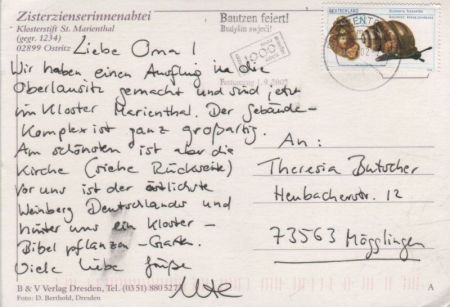 Zisterzienserinnenabtei
Klosterstift St. Marienthal
(gegr. 1234)
02899 Ostritz
Bautzen feiert!
Budyšin swjeći!
1000
DEUTSCHLAND
Liebe Oma!
Wir haben einen Ausflug in die
Oberlausitz gemacht und sind jetzt
im Kloster Marienthal. Der Gebäude-
Komplex ist ganz großartig.
Am schönsten ist aber die
Kirche (siehe Rückseite)
Vor uns ist der östlichste
Weinberg Deutschlands und
hinter uns ein Kloster-
Bibelpflanzen-Garten.
Viele liebe Grüße
Ute
An:
Theresia Butscher
Heubacherstr. 12
73563 Mögglingen
B & V Verlag Dresden, Tel. (03 51) 880 52
Foto: D. Berthold, Dresden
A